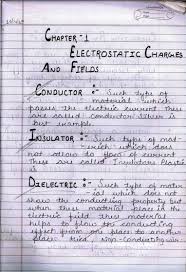 CHAPTER-1
ELECTROSTATIC CHARGES
AND FIELDS
CONDUCTOR :- Such type of
material which
passes the electric current these
are called conductor Silver is
best example
INSULATOR :- Such type of mat-
erial which does not
not allow to flow of current
These are called Insulators Plastic
is
DIELECTRIC :- Such type of mater
ial which does not
show the conducting property but
when these material place in the
electric field these material
helps to flow the conducting
effect from one place to another
place